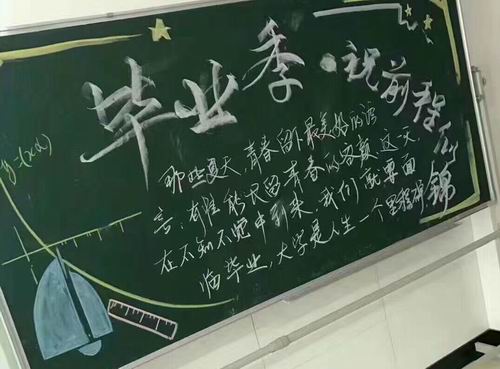 毕业季·祝前程似锦
y=f(x)
那些夏天，青春留下最美的
言，有谁能永留青春的容颜，这一天，
在不知不觉中到来，我们就要面
临毕业，大学是人生一个里程碑